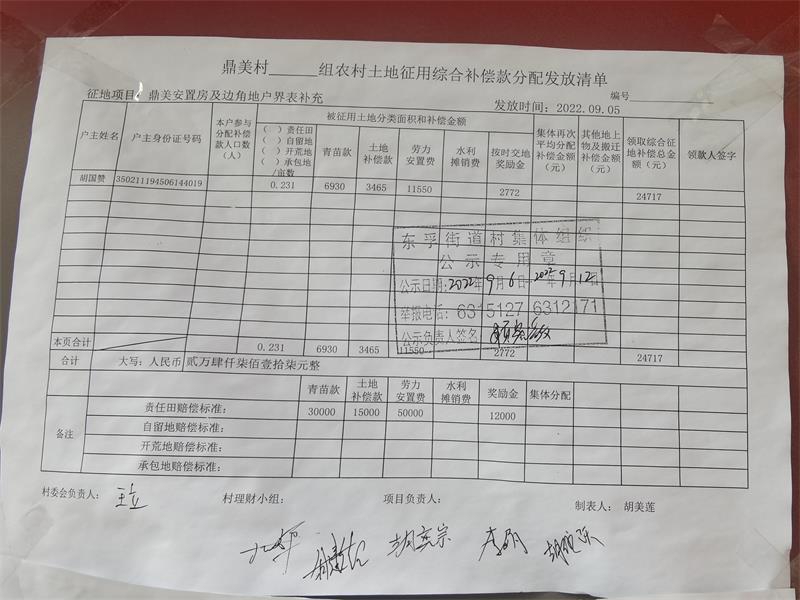 鼎美村______组农村土地征用综合补偿款分配发放清单
编号
征地项目：鼎美安置房及边角地户界表补充
发放时间：2022.09.05
户主姓名 户主身份证号码 本户参与分配补偿款入口数（人） 被征用土地分类面积和补偿金额 集体再次平均分配补偿金额（元） 其他地上物及搬迁补偿金额（元） 领取综合征地补偿总金额（元） 领款人签字
（ ）责任田
（ ）自留地
（ ）开荒地
（ ）承包地
/亩数
青苗款 土地补偿款 劳力安置费 水利摊销费 按时交地奖励金
胡国赞 350211194506144019 0.231 6930 3465 11550 2772 24717
东孚街道村集体组织
公示专用章
公示日期：2022年9月6日-2022年9月12日
举报电话：6315127 6312171
公示负责人签名
本页合计 0.231 6930 3465 11550 2772 24717
合计 大写：人民币 贰万肆仟柒佰壹拾柒元整
备注
青苗款 土地补偿款 劳力安置费 水利摊销费 奖励金 集体分配
责任田赔偿标准： 30000 15000 50000 12000
自留地赔偿标准：
开荒地赔偿标准：
承包地赔偿标准：
村委会负责人： 村理财小组： 项目负责人： 制表人： 胡美莲